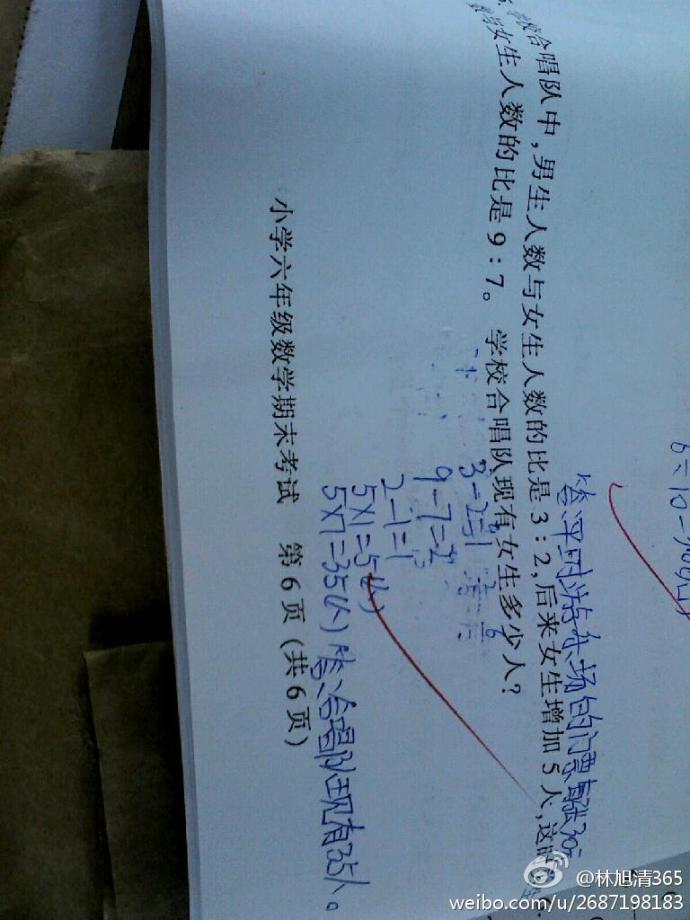 学校合唱队中，男生人数与女生人数的比是3：2，后来女生增加5人，这时
数与女生人数的比是9：7。学校合唱队现有女生多少人？
3-2=1
9-7=2
2-1=1
5×1=5(人)
5×7=35(人) 答:合唱队现有35人。
小学六年级数学期末考试 第6页（共6页）
@林旭清365
weibo.com/u/2687198183